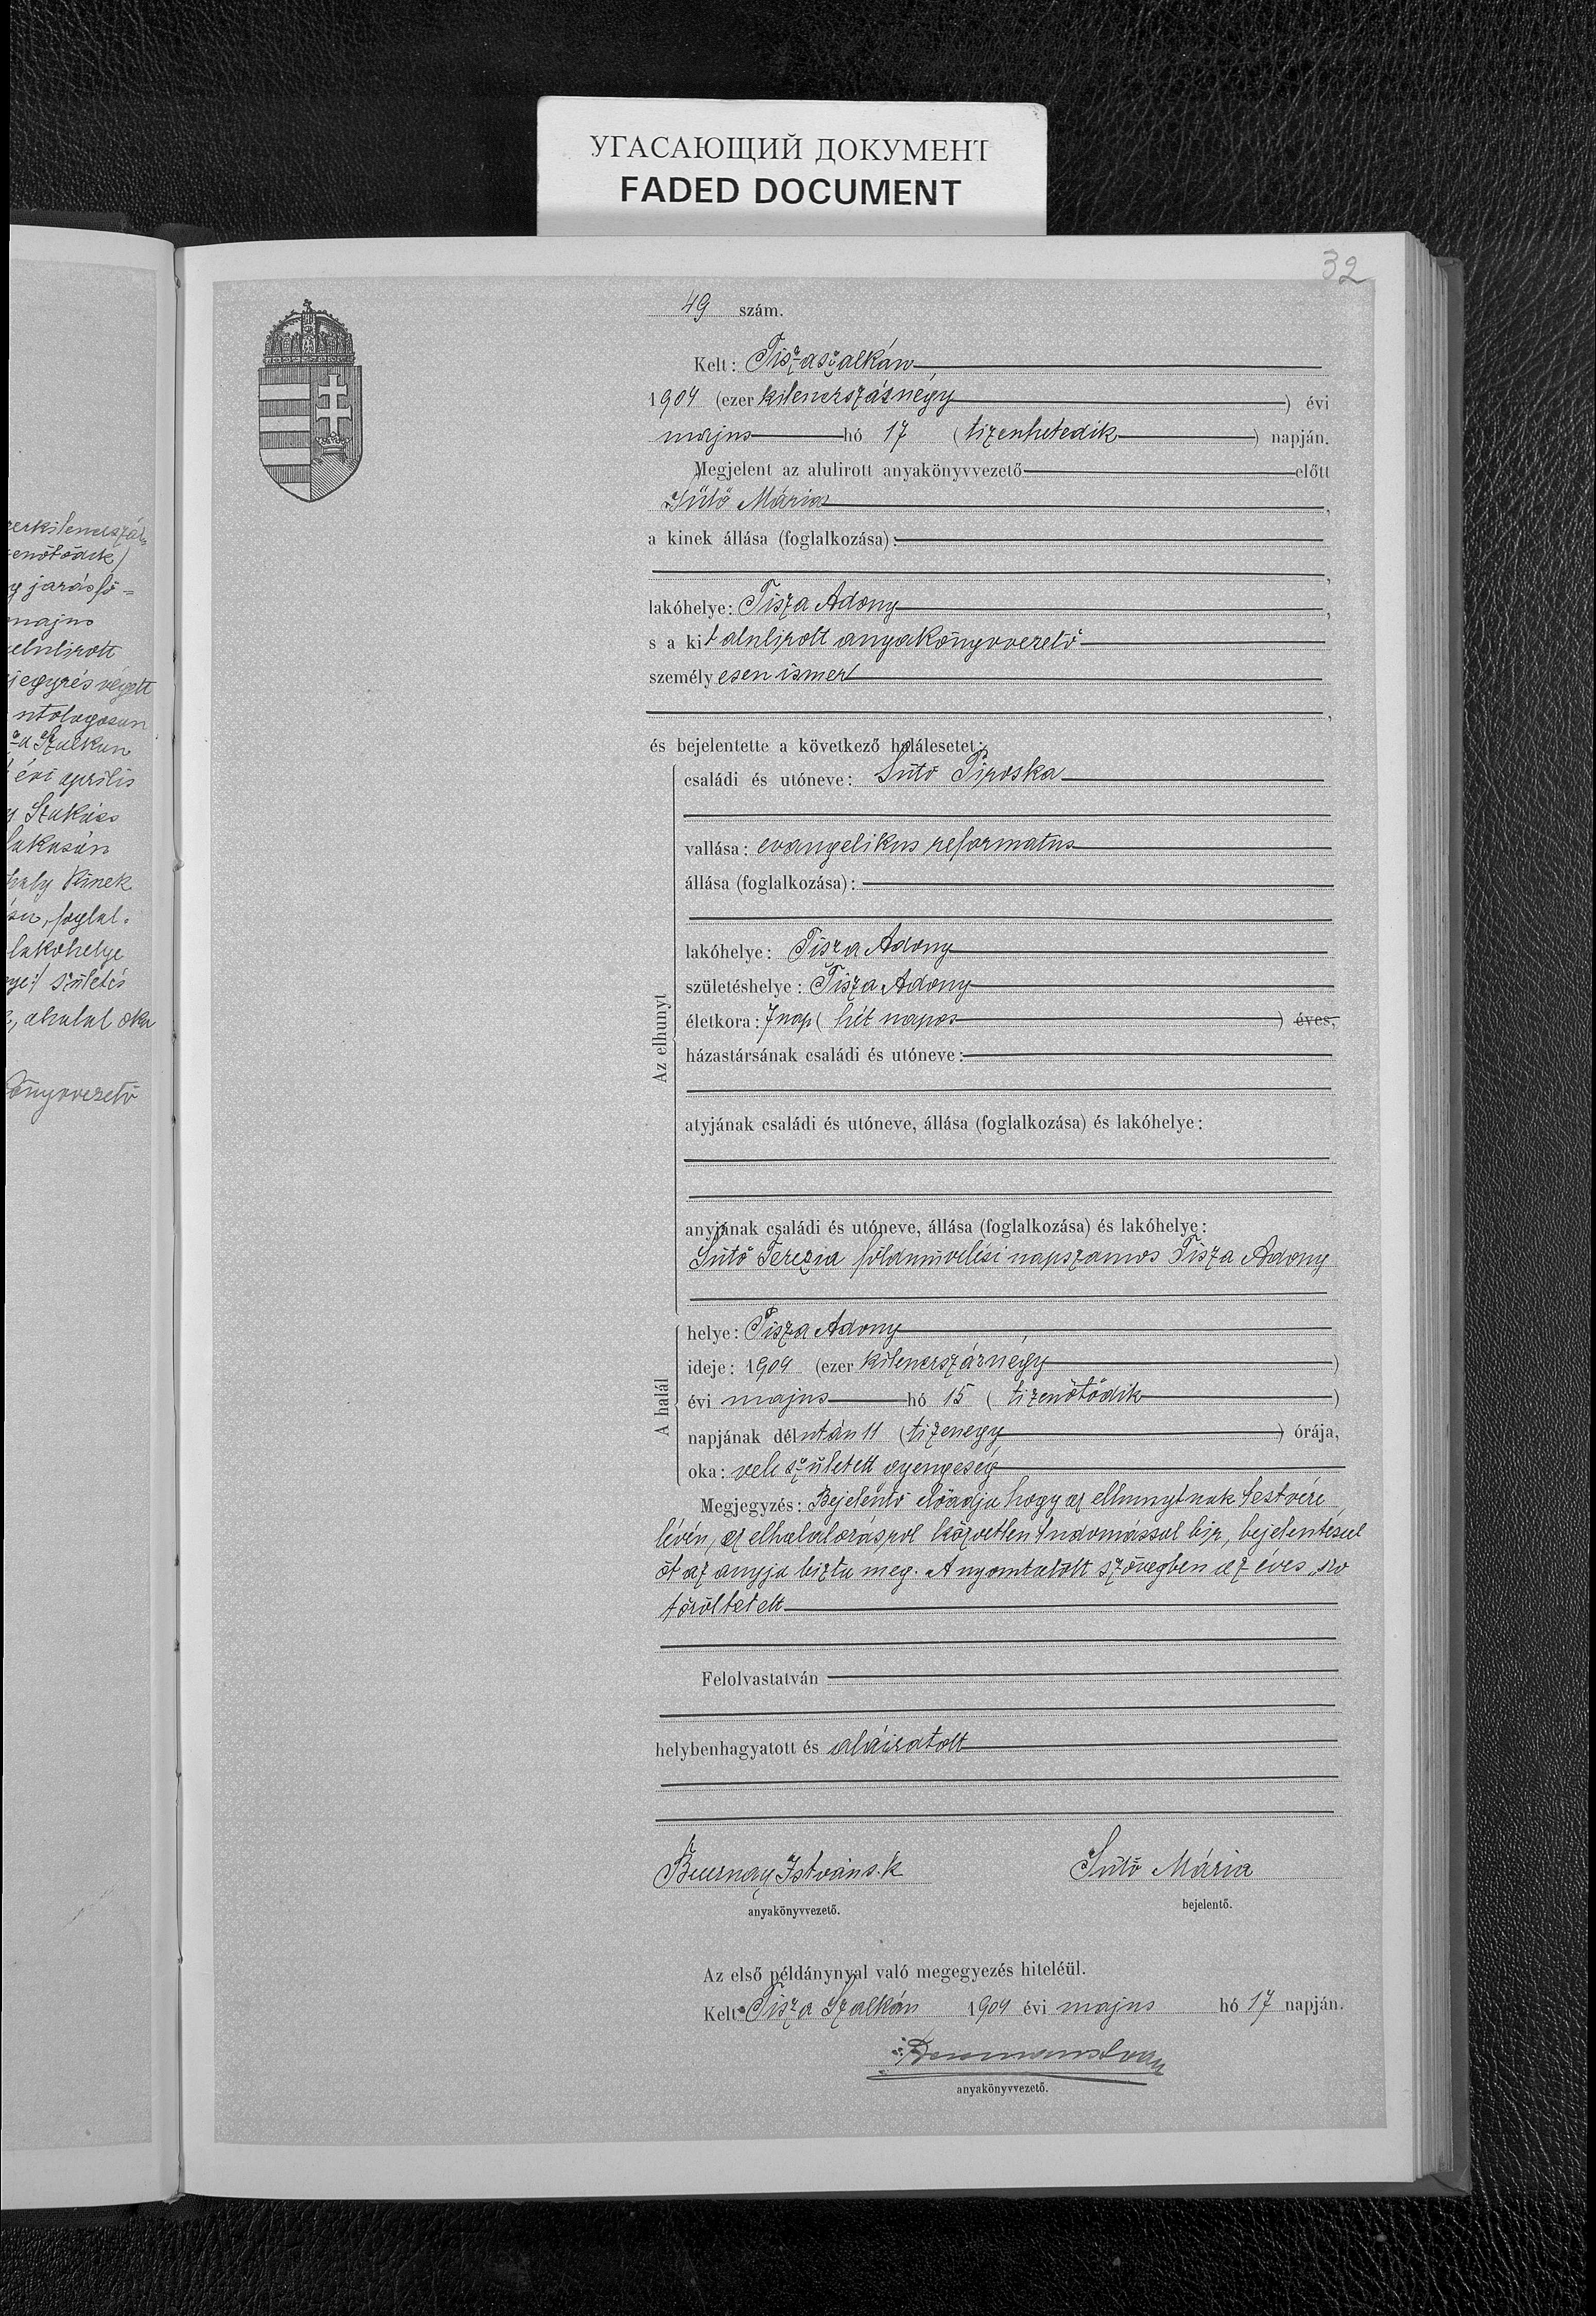 УГАСАЮЩИЙ ДОКУМЕНТ
FADED DOCUMENT
32
49 szám.
Kelt: Tiszaszalkán
1904 (ezer kilenczszásnégy) évi
majus hó 17 (tizenhetedik) napján.
Megjelent az alulirott anyakönyvvezető előtt
Sütő Mária,
a kinek állása (foglalkozása):
,
lakóhelye: Tisza Adony,
s a kit alulirott anyakönyvvezető
személyesen ismer
,
és bejelentette a következő halálesetet:
Az elhunyt
családi és utóneve: Sütő Piroska
vallása: evangelikus reformatus
állása (foglalkozása):
lakóhelye: Tisza Adony
születéshelye: Tisza Adony
életkora: 7 nap (hét napos) éves,
házastársának családi és utóneve:
atyjának családi és utóneve, állása (foglalkozása) és lakóhelye:
anyjának családi és utóneve, állása (foglalkozása) és lakóhelye:
Sütő Terezia földmüvelési napszamos Tisza Adony
A halál
helye: Tisza Adony
ideje: 1904 (ezer kilenczszáznégy)
évi majus hó 15 (tizenötödik)
napjának délután 11 (tizenegy) órája,
oka: vele született gyengeség
Megjegyzés: Bejelentő előadja hogy az elhunytnak testvére
lévén, az elhalalozásrol közvetlen tudomással bir, bejelentésül
őt az anyja bizta meg. A nyomtatott szövegben az éves „szo
töröltetett
Felolvastatván
helybenhagyatott és aláiratott
István s. k
anyakönyvvezető.
Sütő Mária
bejelentő.
Az első példánynyal való megegyezés hiteléül.
Kelt Tisza Szalkán 1904 évi majus hó 17 napján.
anyakönyvvezető.
enötödik)
g járásfő=
majus
alulirott
jegyzés végett
a Szalkán
évi aprilis
Szakács
lakásán
lakohelye
születés
önyvvezető